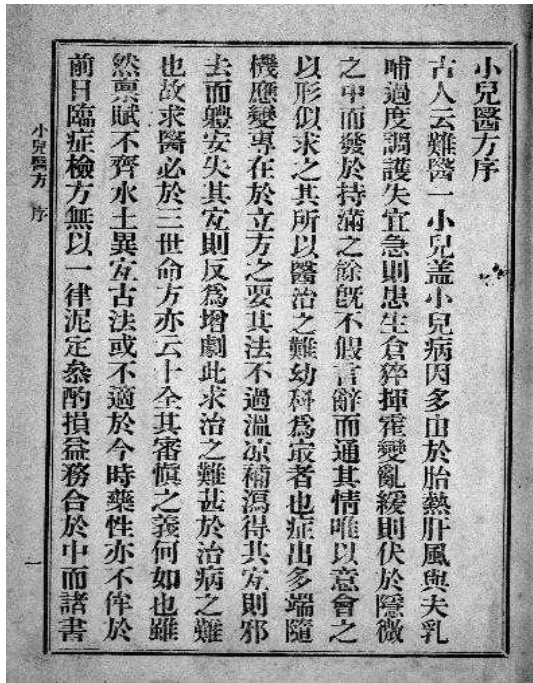 小兒醫方序
古人云難醫一小兒盖小兒病因多由於胎熱肝風與夫乳
哺過度調護失宜急則患生倉猝揮霍變亂緩則伏於隱微
之中而發於持滿之餘旣不假言辭而通其情唯以意會之
以形似求之其所以醫治之難幼科爲㝡者也症出多端隨
機應變專在於立方之要其法不過溫凉補瀉得其冝則邪
去而軆安失其冝則反爲增劇此求治之難甚於治病之難
也故求醫必於三世命方亦云十全其審愼之義何如也雖
然禀賦不齊水土異冝古法或不適於今時藥性亦不侔於
前日臨症檢方無以一律泥定叅酌損益務合於中而諸書
小兒醫方 序 一